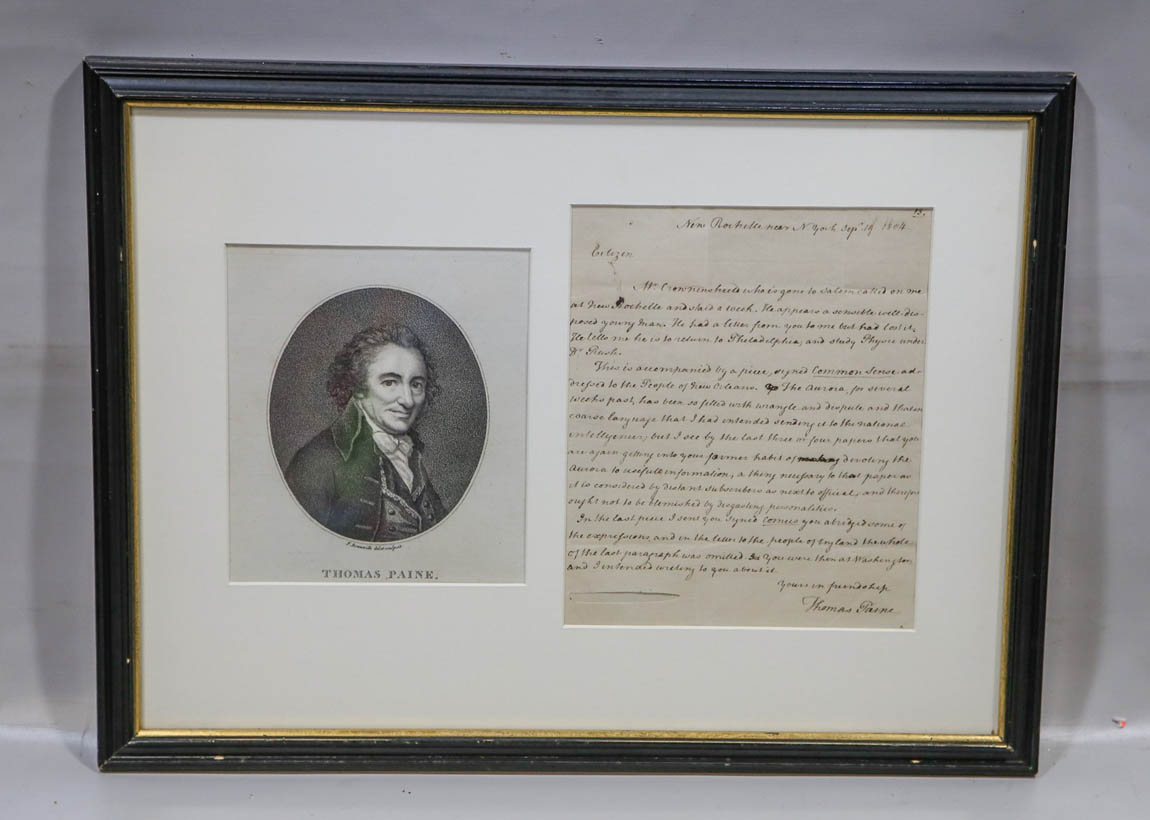 THOMAS PAINE.
13.
New Rochelle near N. York Sept. 1804
Citizen
Mr. Crowninshield who is gone to Salem called on me
at New Rochelle and staid a week. He appears a sensible well-dis-
posed young man. He had a letter from you to me but had lost it.
He tells me he is to return to Philadelphia, and study Physic under
Dr. Rush.
This is accompanied by a piece, signed Common Sense ad-
dressed to the People of New Orleans. The Aurora, for several
weeks past, has been so filled with wrangle and dispute and that in
coarse language that I had intended sending it to the national
intelligencer, but I see by the last three or four papers that you
are again getting into your former habit of devoting the
Aurora to usefull information, a thing necessary to that paper as
it is considered by distant subscribers as next to official, and therefore
ought not to be blemished by disgusting personalities.
In the last piece I sent you signed Comus you abridged some of
the expressions, and in the letter to the people of England the whole
of the last paragraph was omitted. You were then at Washington
and I intended writing to you about it.
Yours in friendship
Thomas Paine